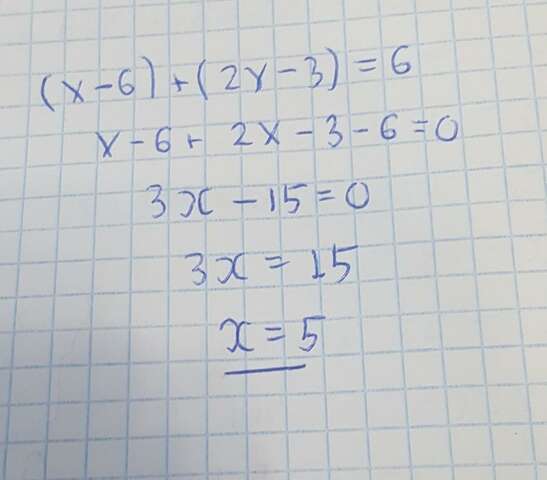 (x-6)+(2x-3)=6
x-6+2x-3-6=0
3x-15=0
3x=15
x=5